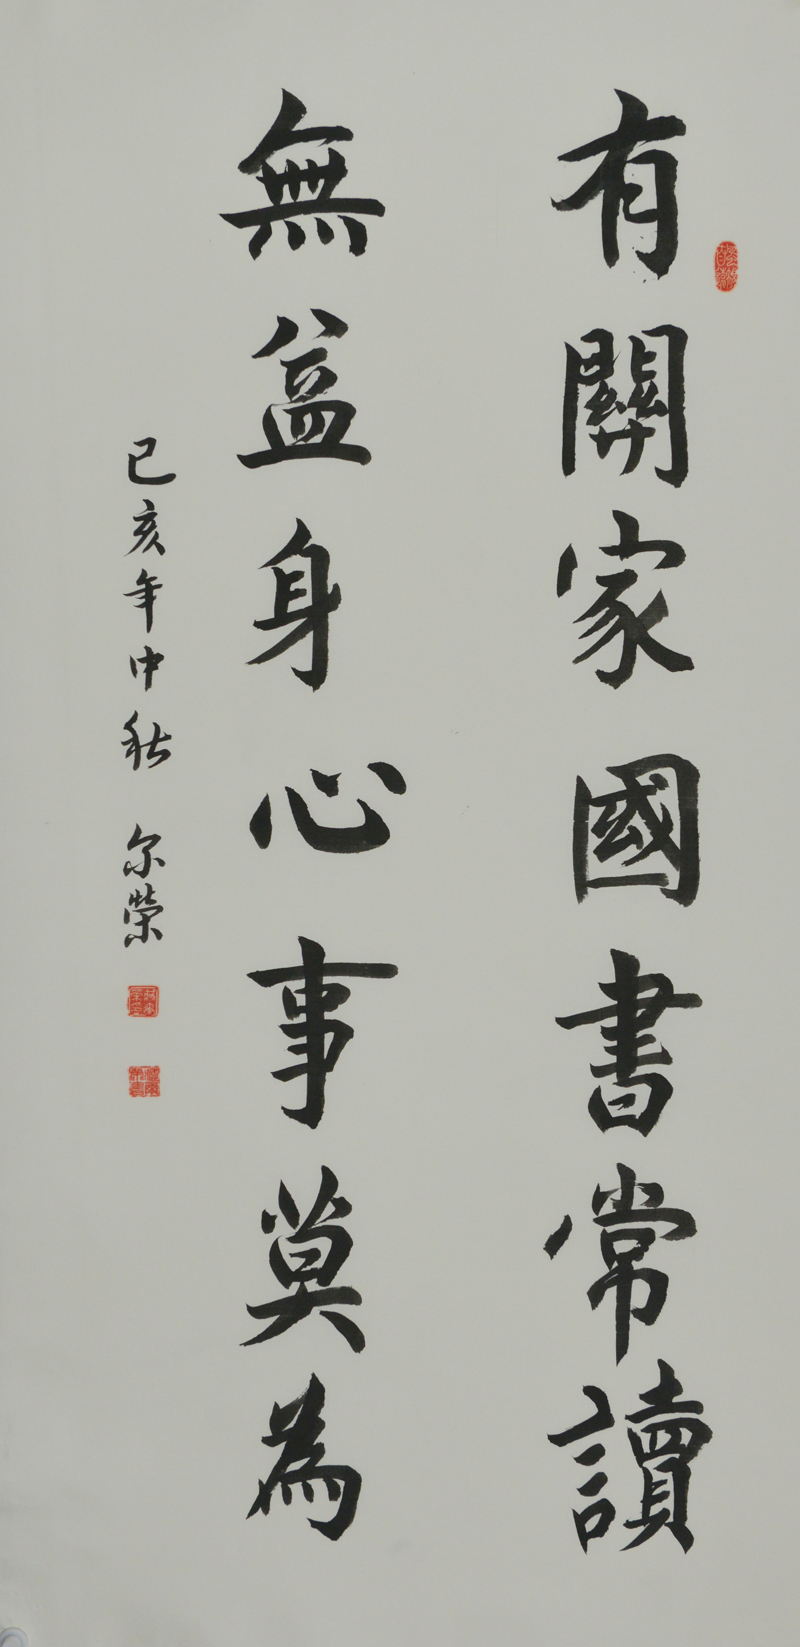 有關家國書常讀
無益身心事莫為
己亥年中秋 尔榮